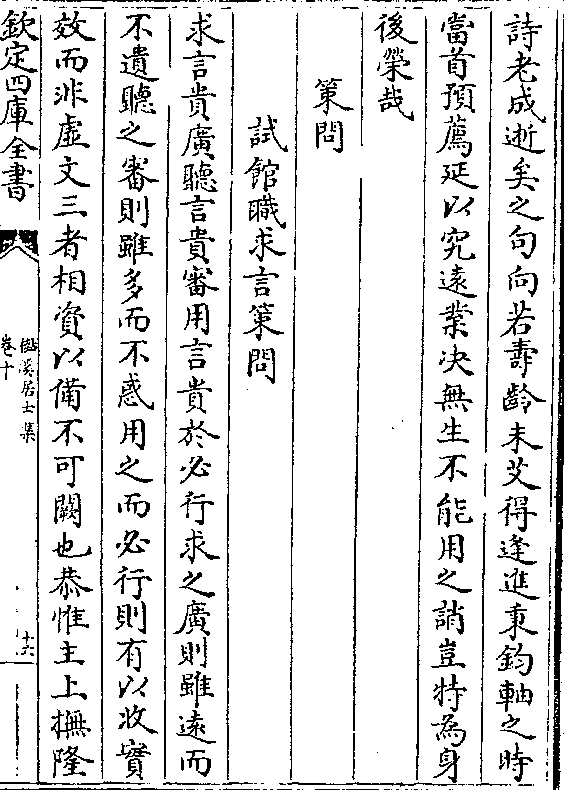 詩老成逝矣之句向若壽齡未艾得逢進秉鈞軸之時
當首預薦延以究遠業决無生不能用之誚豈特為身
後榮哉
策問
試館職求言策問
求言貴廣聽言貴審用言貴於必行求之廣則雖遠而
不遺聽之審則雖多而不惑用之而必行則有以收實
效而非虛文三者相資以備不可闕也恭惟主上撫隆
欽定四庫全書
溪居士集
卷十
十六